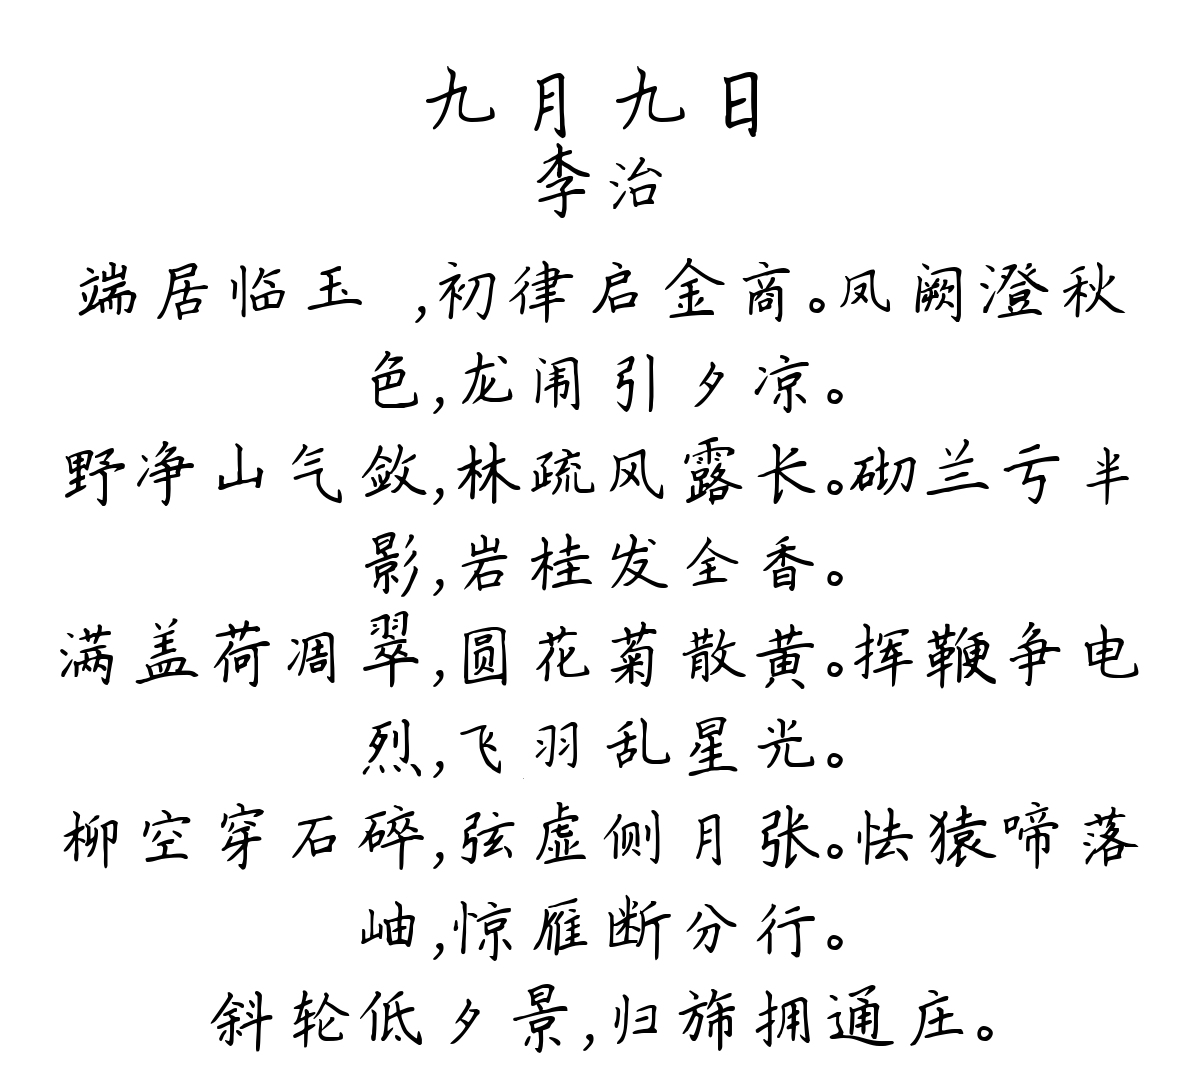 九月九日
李治
端居临玉 ,初律启金商。凤阙澄秋
色,龙闱引夕凉。
野净山气敛,林疏风露长。砌兰亏半
影,岩桂发全香。
满盖荷凋翠,圆花菊散黄。挥鞭争电
烈,飞羽乱星光。
柳空穿石碎,弦虚侧月张。怯猿啼落
岫,惊雁断分行。
斜轮低夕景,归旆拥通庄。